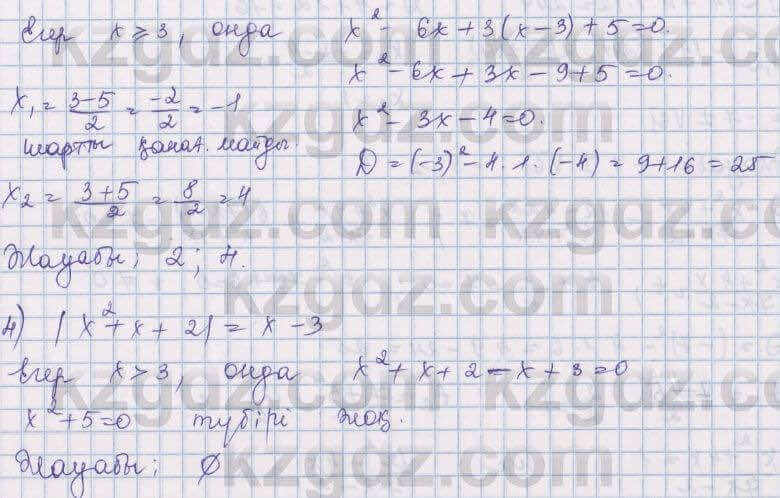 Егер x ≥ 3, онда x² - 6x + 3(x - 3) + 5 = 0.
x² - 6x + 3x - 9 + 5 = 0.
x₁ = (3-5)/2 = -2/2 = -1
x² - 3x - 4 = 0.
шартты қанағ. майды.
D = (-3)² - 4 · 1 · (-4) = 9 + 16 = 25
x₂ = (3+5)/2 = 8/2 = 4
Жауабы: 2; 4.
4) |x² + x + 2| = x - 3
Егер x > 3, онда x² + x + 2 - x + 3 = 0
x² + 5 = 0 түбірі жоқ.
Жауабы: ∅
kzgdz.com
kzgdz.com
kzgdz.com
kzgdz.com
kzgdz.com
kzgdz.com